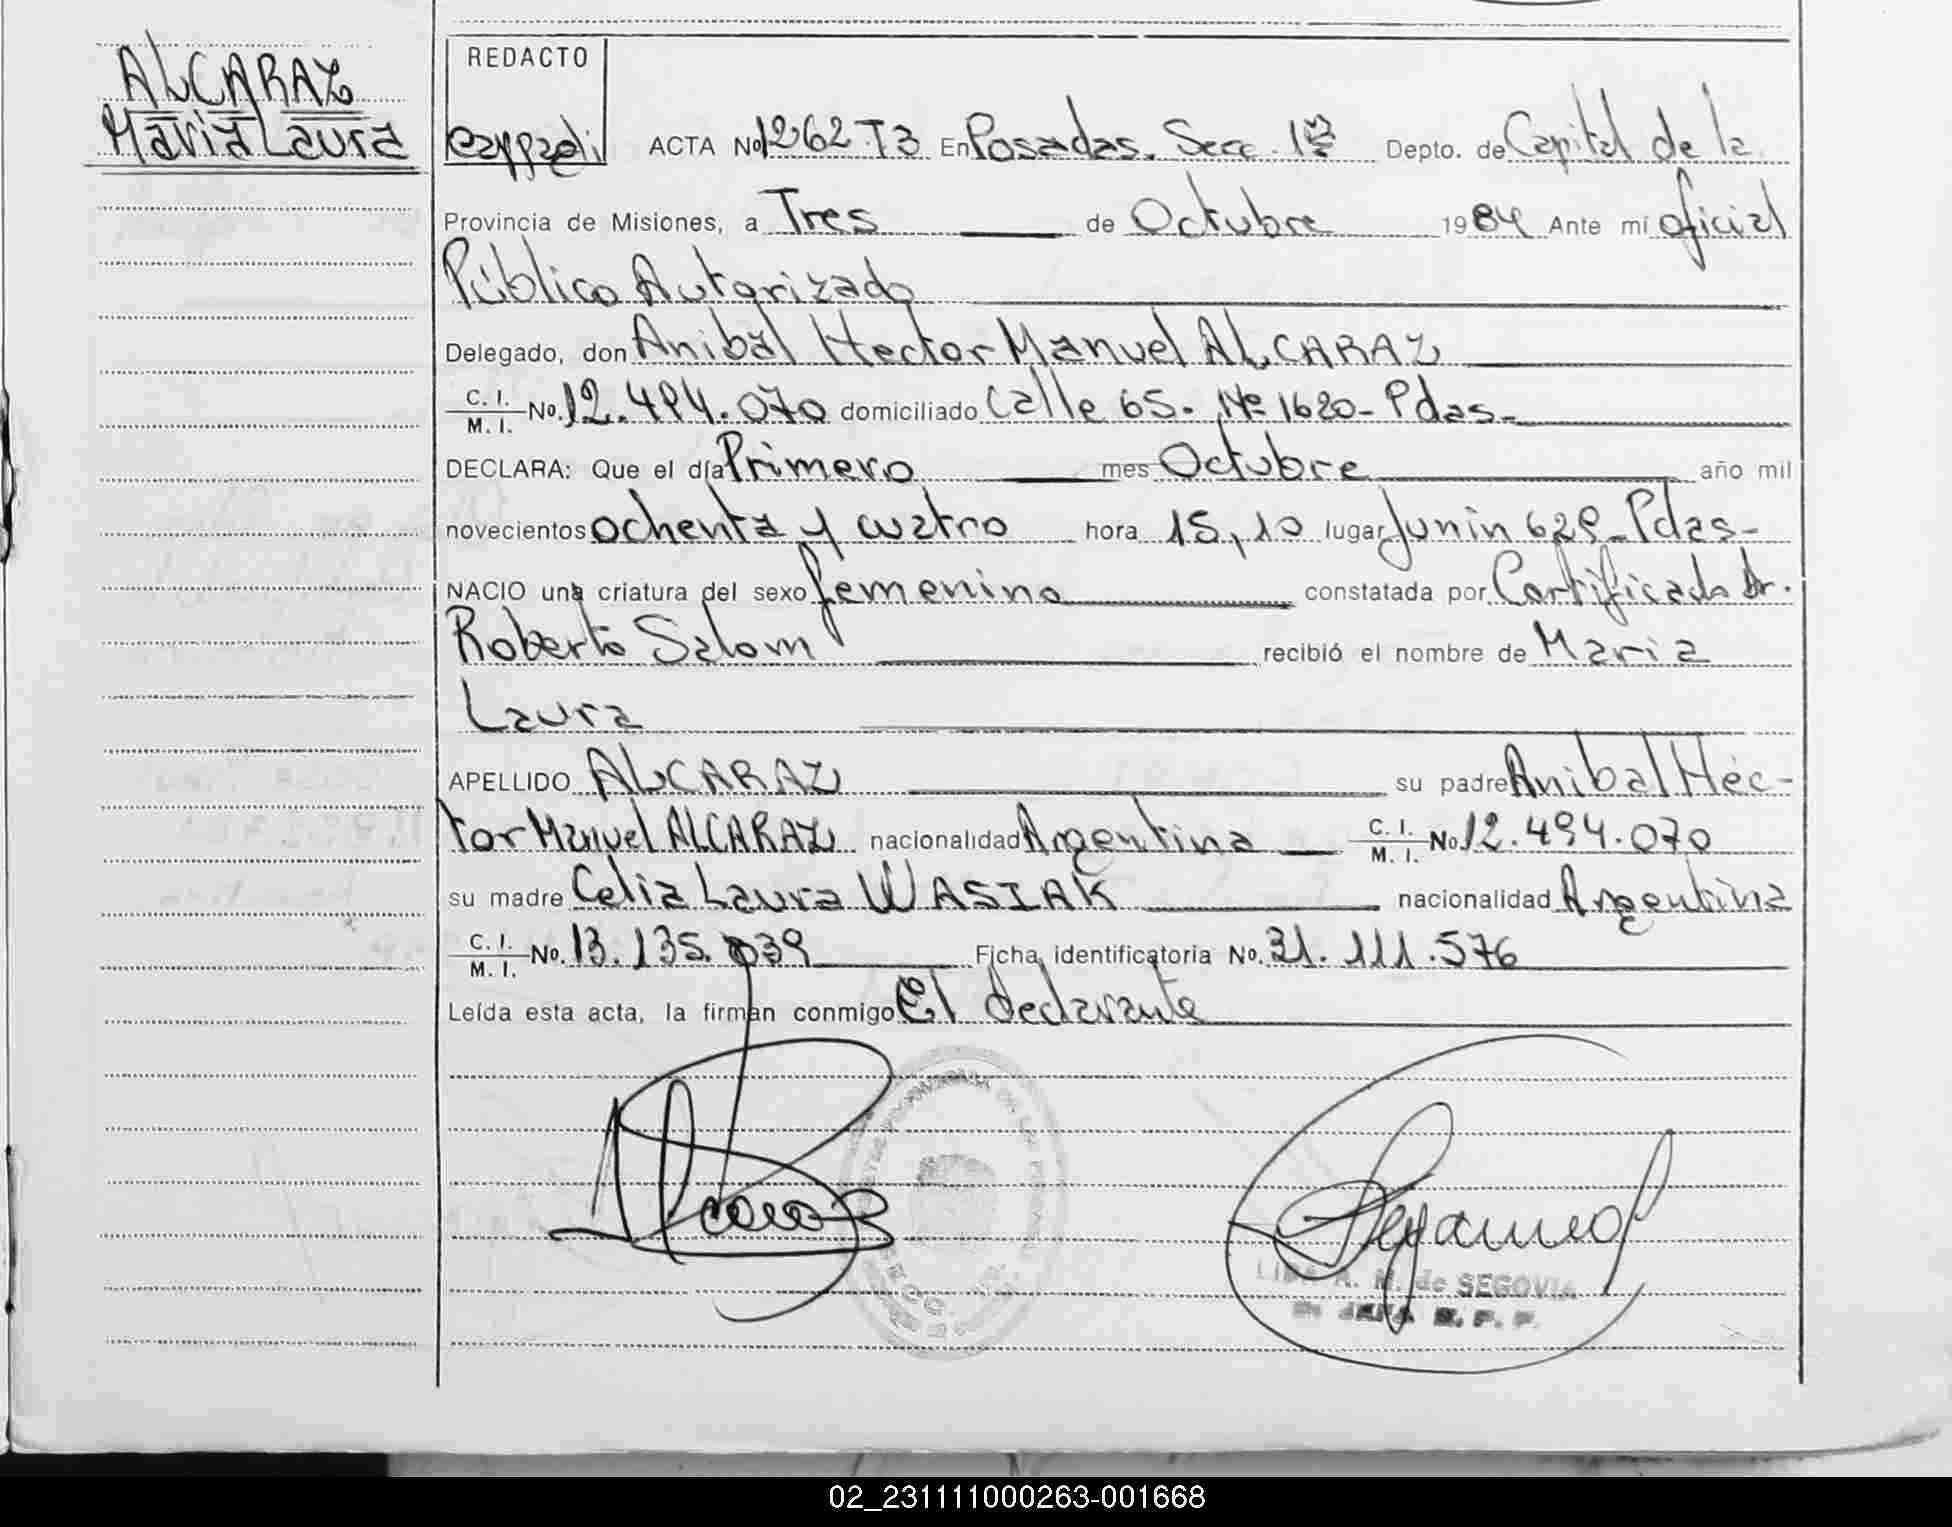 ALCARAZ
Maria Laura
REDACTO
ACTA No 1262-T3 En Posadas. Secc. 1ª Depto. de Capital de la
Provincia de Misiones, a Tres de Octubre 1984 Ante mí oficial
Público Autorizado
Delegado, don Anibal Hector Manuel ALCARAZ
C. I.
M. I. No. 12.494.070 domiciliado Calle 65. Nº 1620- Pdas-
DECLARA: Que el día Primero mes Octubre año mil
novecientos ochenta y cuatro hora 15,10 lugar Junin 629- Pdas-
NACIO una criatura del sexo femenino constatada por Certificado Dr.
Roberto Salom recibió el nombre de Maria
Laura
APELLIDO ALCARAZ su padre Anibal Héc-
tor Manuel ALCARAZ nacionalidad Argentina C. I.
M. I. No. 12.494.070
su madre Celia Laura WASIAK nacionalidad Argentina
C. I.
M. I. No. 13.135.039 Ficha identificatoria No. 31.111.576
Leída esta acta, la firman conmigo El declarante
LIDA A. M. de SEGOVIA
02_231111000263-001668